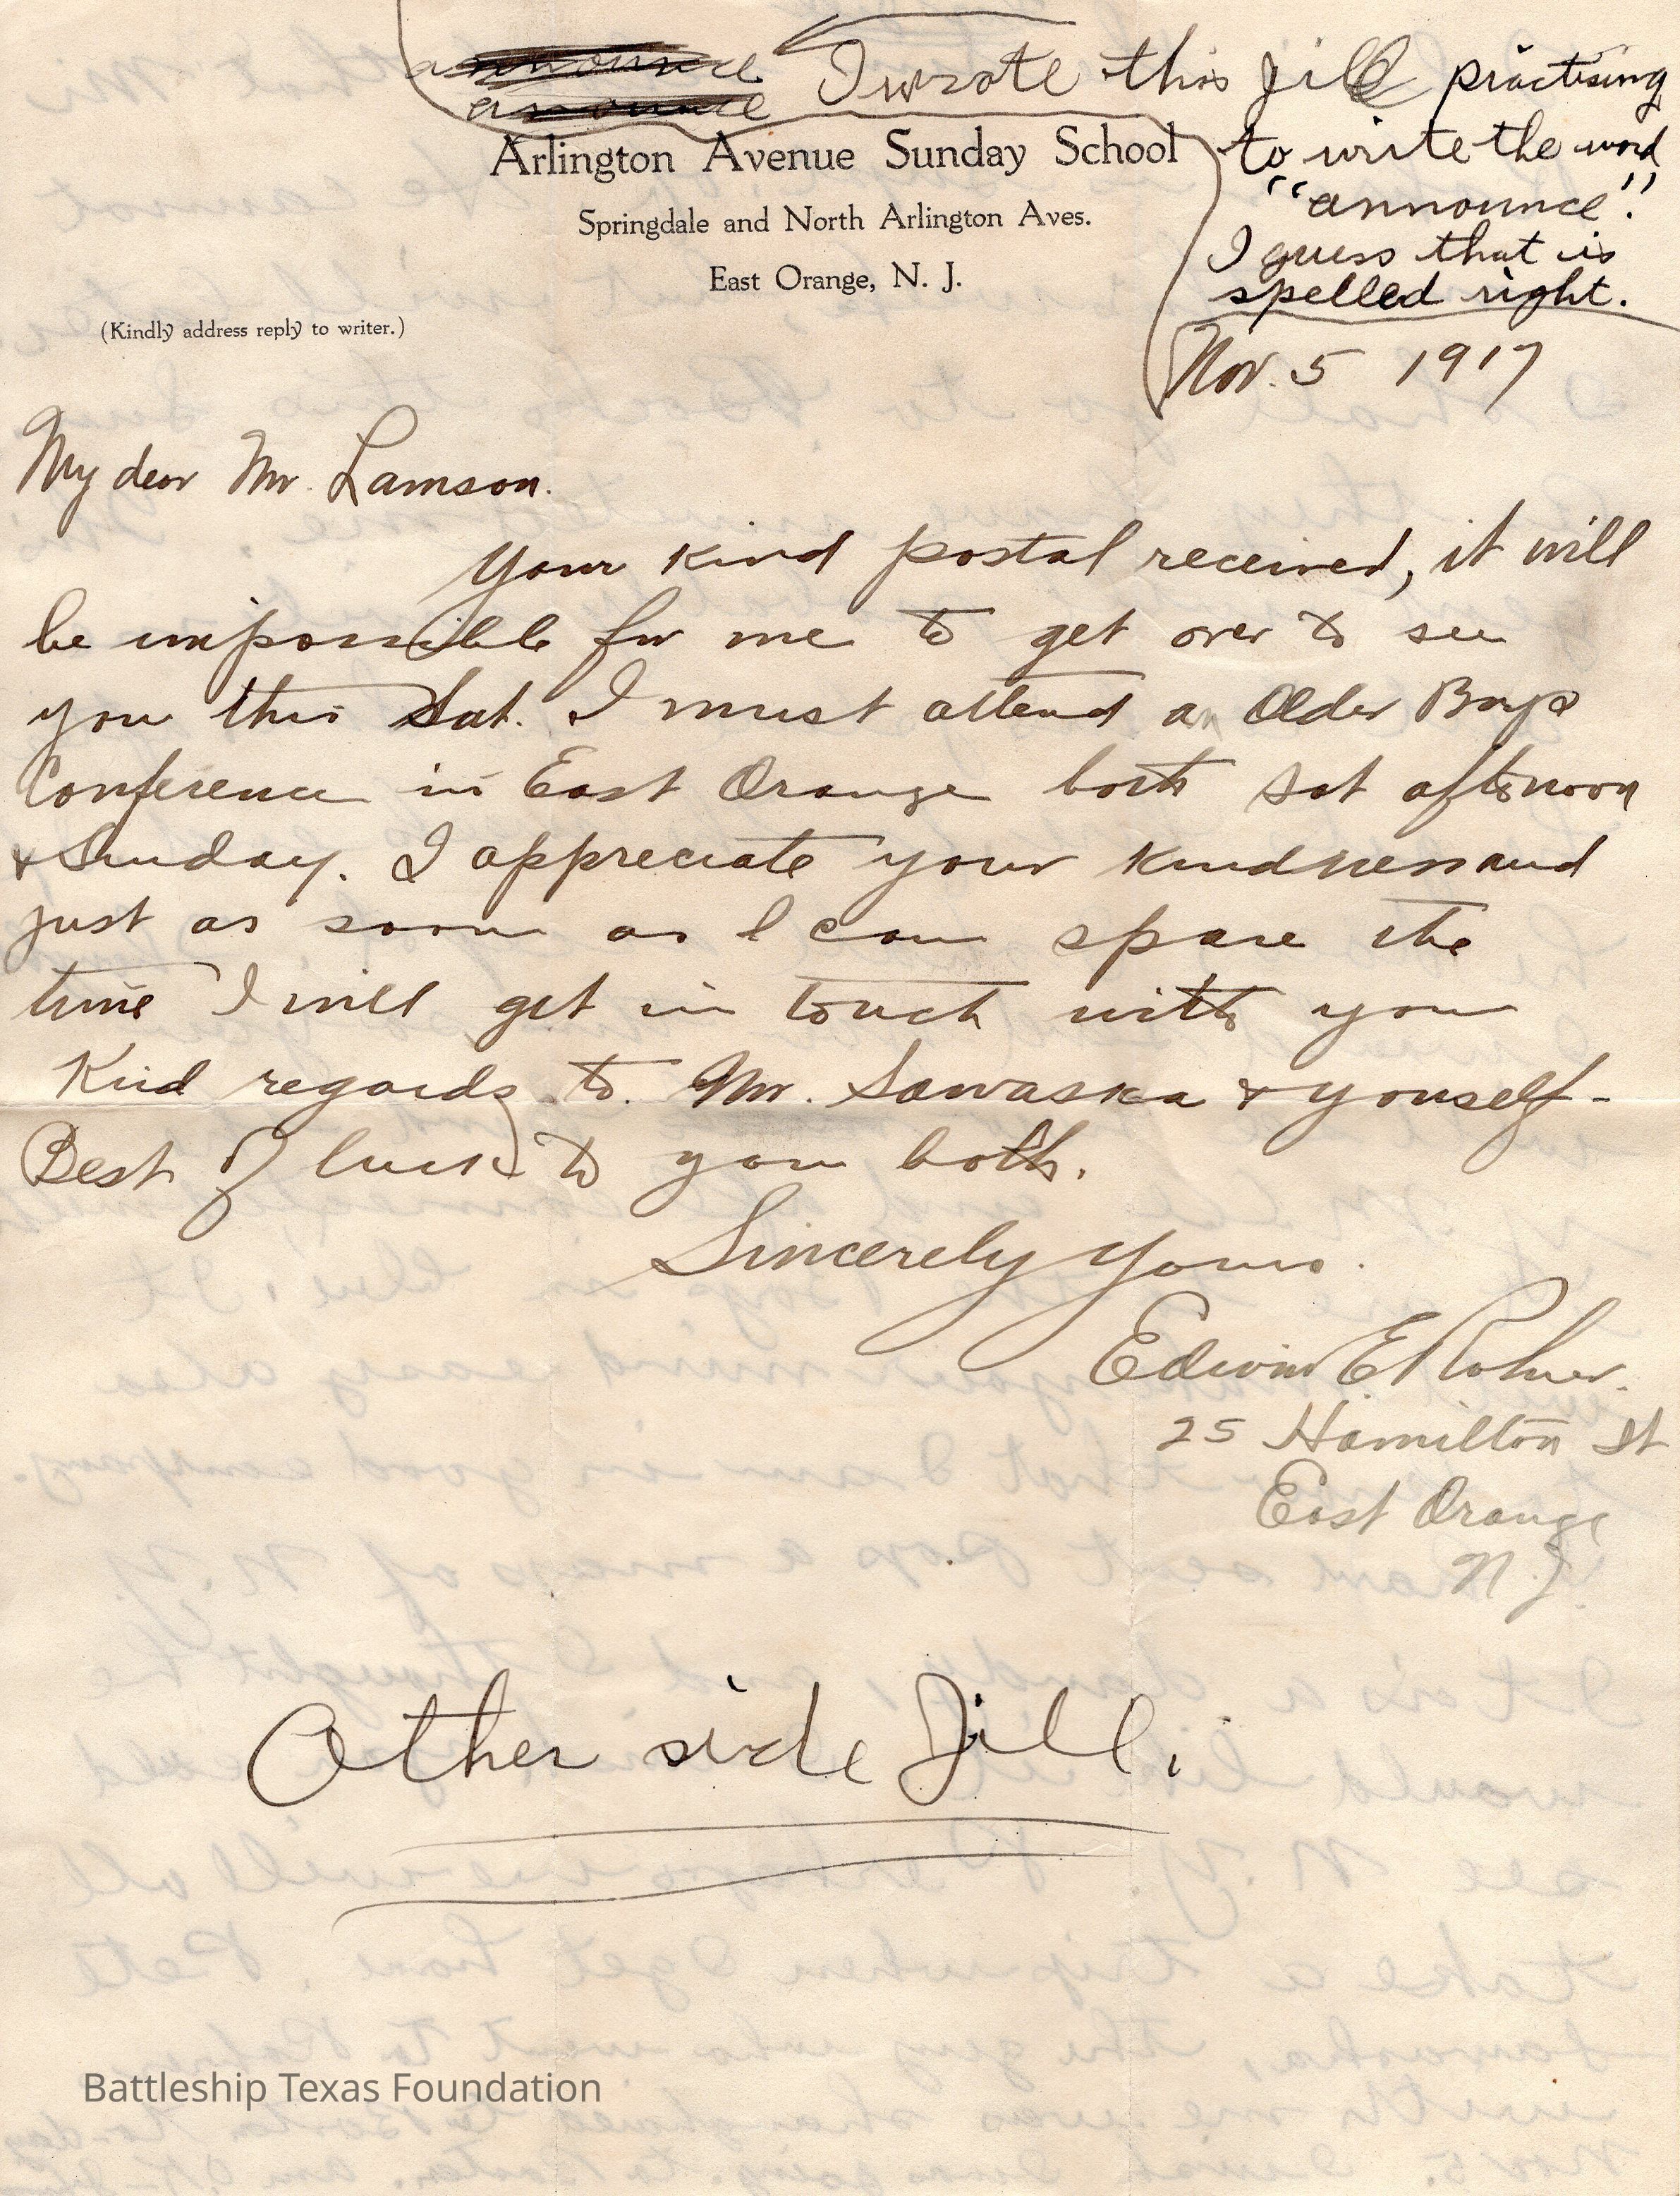 announce I wrote this Jill practising
announce
to write the word
"announce".
I guess that is
spelled right.
Arlington Avenue Sunday School
Springdale and North Arlington Aves.
East Orange, N. J.
(Kindly address reply to writer.)
Nov. 5 1917
My dear Mr. Lamson.
Your kind postal received, it will
be impossible for me to get over to see
you this Sat. I must attend an Older Boys
Conference in East Orange both Sat afternoon
& Sunday. I appreciate your kindness and
just as soon as I can spare the
time I will get in touch with you
Kind regards to Mr. Sawaska & yourself-
Best of luck to you both.
Sincerely Yours.
Edwin E Rohrer.
25 Hamilton St
East Orange
N.J.
Other side Jill.
Battleship Texas Foundation